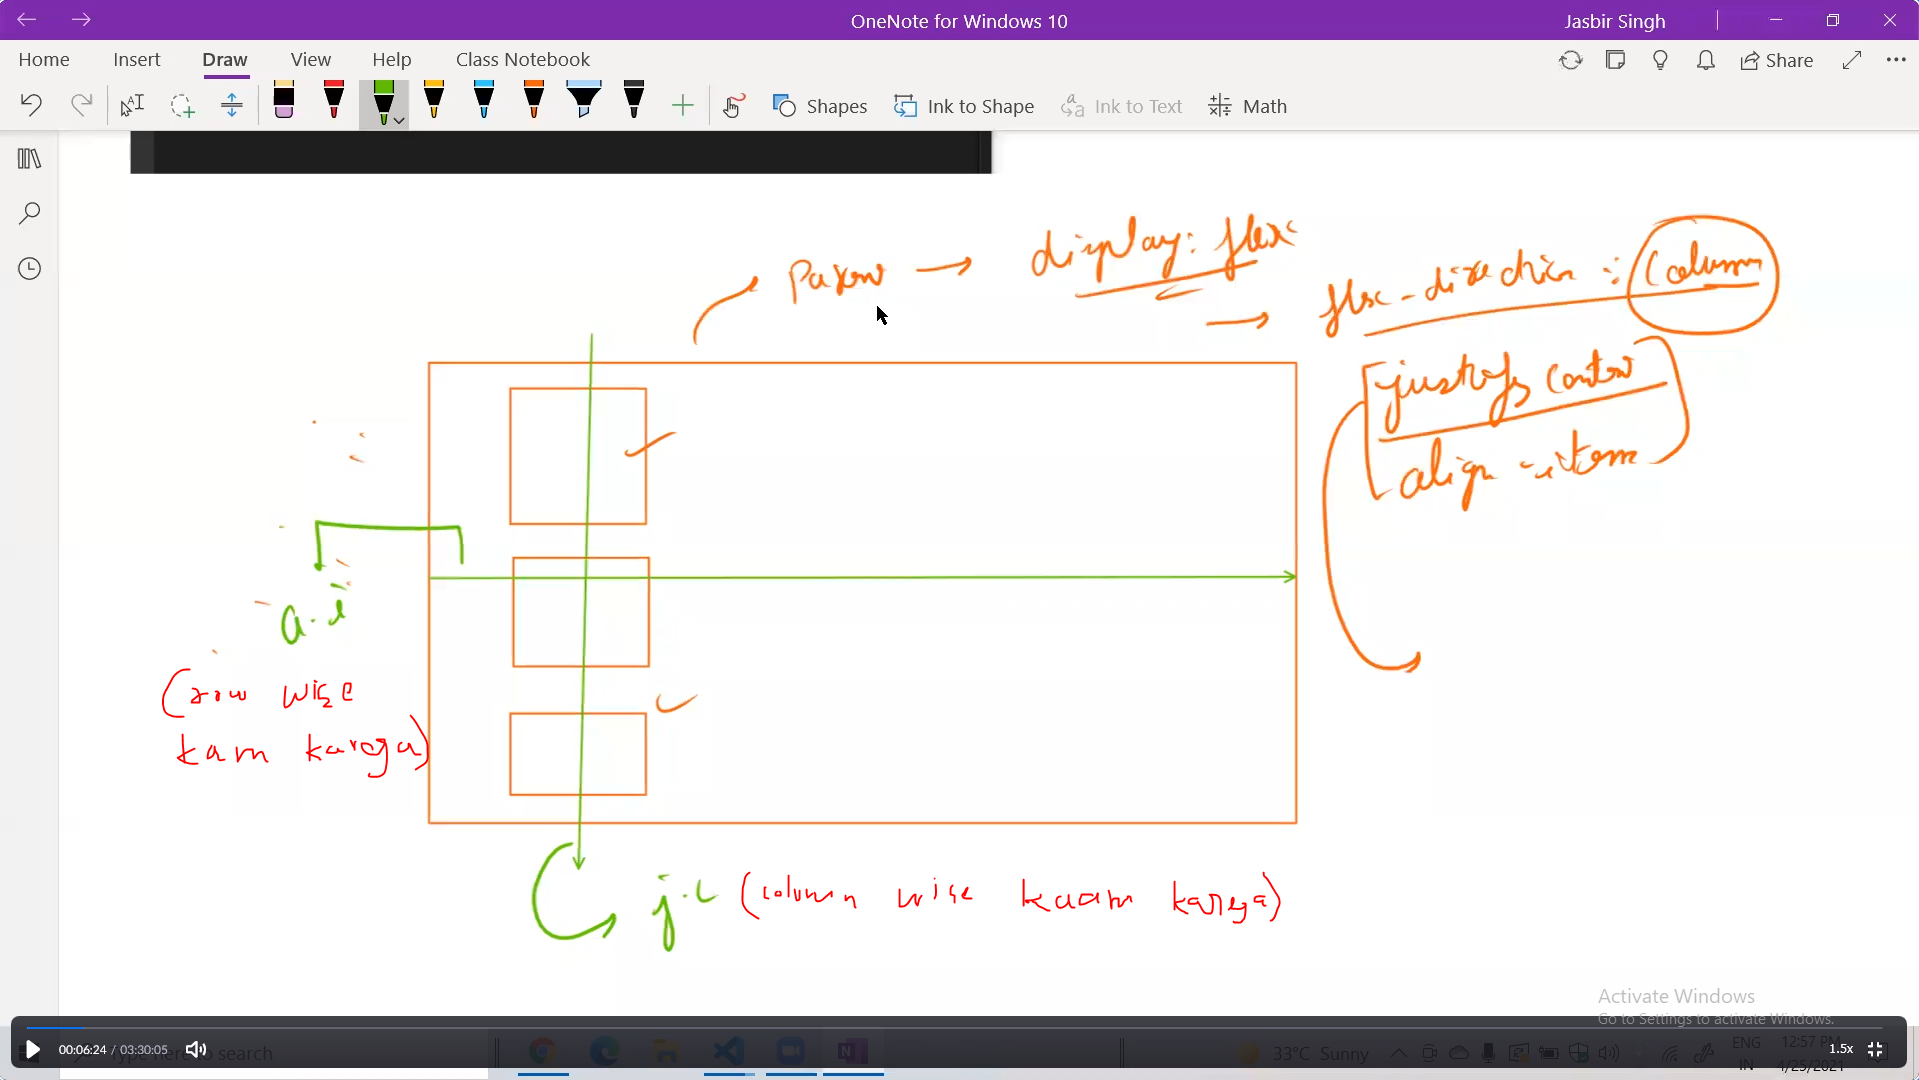 OneNote for Windows 10
Jasbir Singh
Home Insert Draw View Help Class Notebook
Share
Shapes Ink to Shape Ink to Text Math
display: flex
flex-direction : Column
align-item
a.i
(row wise
kam karega)
j.c (column wise kaam karega)
Activate Windows
Go to Settings to activate Windows.
00:06:24 / 03:30:05
Type here to search
33°C Sunny
ENG
IN
12:57 PM
4/25/2021
1.5x